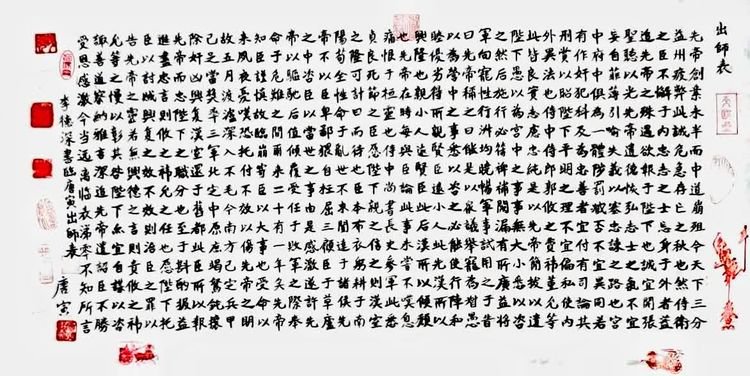 出師表
先帝創業未半而中道崩殂今天下三分
益州疲弊此誠危急存亡之秋也然侍衛
之臣不懈於內忠志之士忘身於外者蓋
追先帝之殊遇欲報之於陛下也誠宜開張
聖聽以光先帝遺德恢弘志士之氣不宜
妄自菲薄引喻失義以塞忠諫之路也宮
中府中俱為一體陟罰臧否不宜異同若
有作奸犯科及為忠善者宜付有司論其
刑賞以昭陛下平明之理不宜偏私使內
外異法也侍中侍郎郭攸之費禕董允等
此皆良實志慮忠純是以先帝簡拔以遺
陛下愚以為宮中之事事無大小悉以咨
之然後施行必能裨補闕漏有所廣益將
軍向寵性行淑均曉暢軍事試用於昔
日先帝稱之曰能是以眾議舉寵為督愚
以為營中之事悉以咨之必能使行陣和
睦優劣得所親賢臣遠小人此先漢所以
興隆也親小人遠賢臣此後漢所以傾頹
也先帝在時每與臣論此事未嘗不歎息
痛恨於桓靈也侍中尚書長史參軍此悉
貞良死節之臣願陛下親之信之則漢室
之隆可計日而待也臣本布衣躬耕於南
陽苟全性命於亂世不求聞達於諸侯先
帝不以臣卑鄙猥自枉屈三顧臣於草廬
之中咨臣以當世之事由是感激遂許先
帝以驅馳後值傾覆受任於敗軍之際奉
命於危難之間爾來二十有一年矣先帝
知臣謹慎故臨崩寄臣以大事也受命以
來夙夜憂歎恐託付不效以傷先帝之明
故五月渡瀘深入不毛今南方已定兵甲
已足當獎率三軍北定中原庶竭駑鈍攘
除奸凶興復漢室還於舊都此臣所以報
先帝而忠陛下之職分也至於斟酌損益
進盡忠言則攸之禕允之任也願陛下託
臣以討賊興復之效不效則治臣之罪以
告先帝之靈若無興德之言則責攸之禕
允等之慢以彰其咎陛下亦宜自謀以咨
諏善道察納雅言深追先帝遺詔臣不勝
受恩感激今當遠離臨表涕零不知所言
李德深書臨唐寅出師表
唐寅